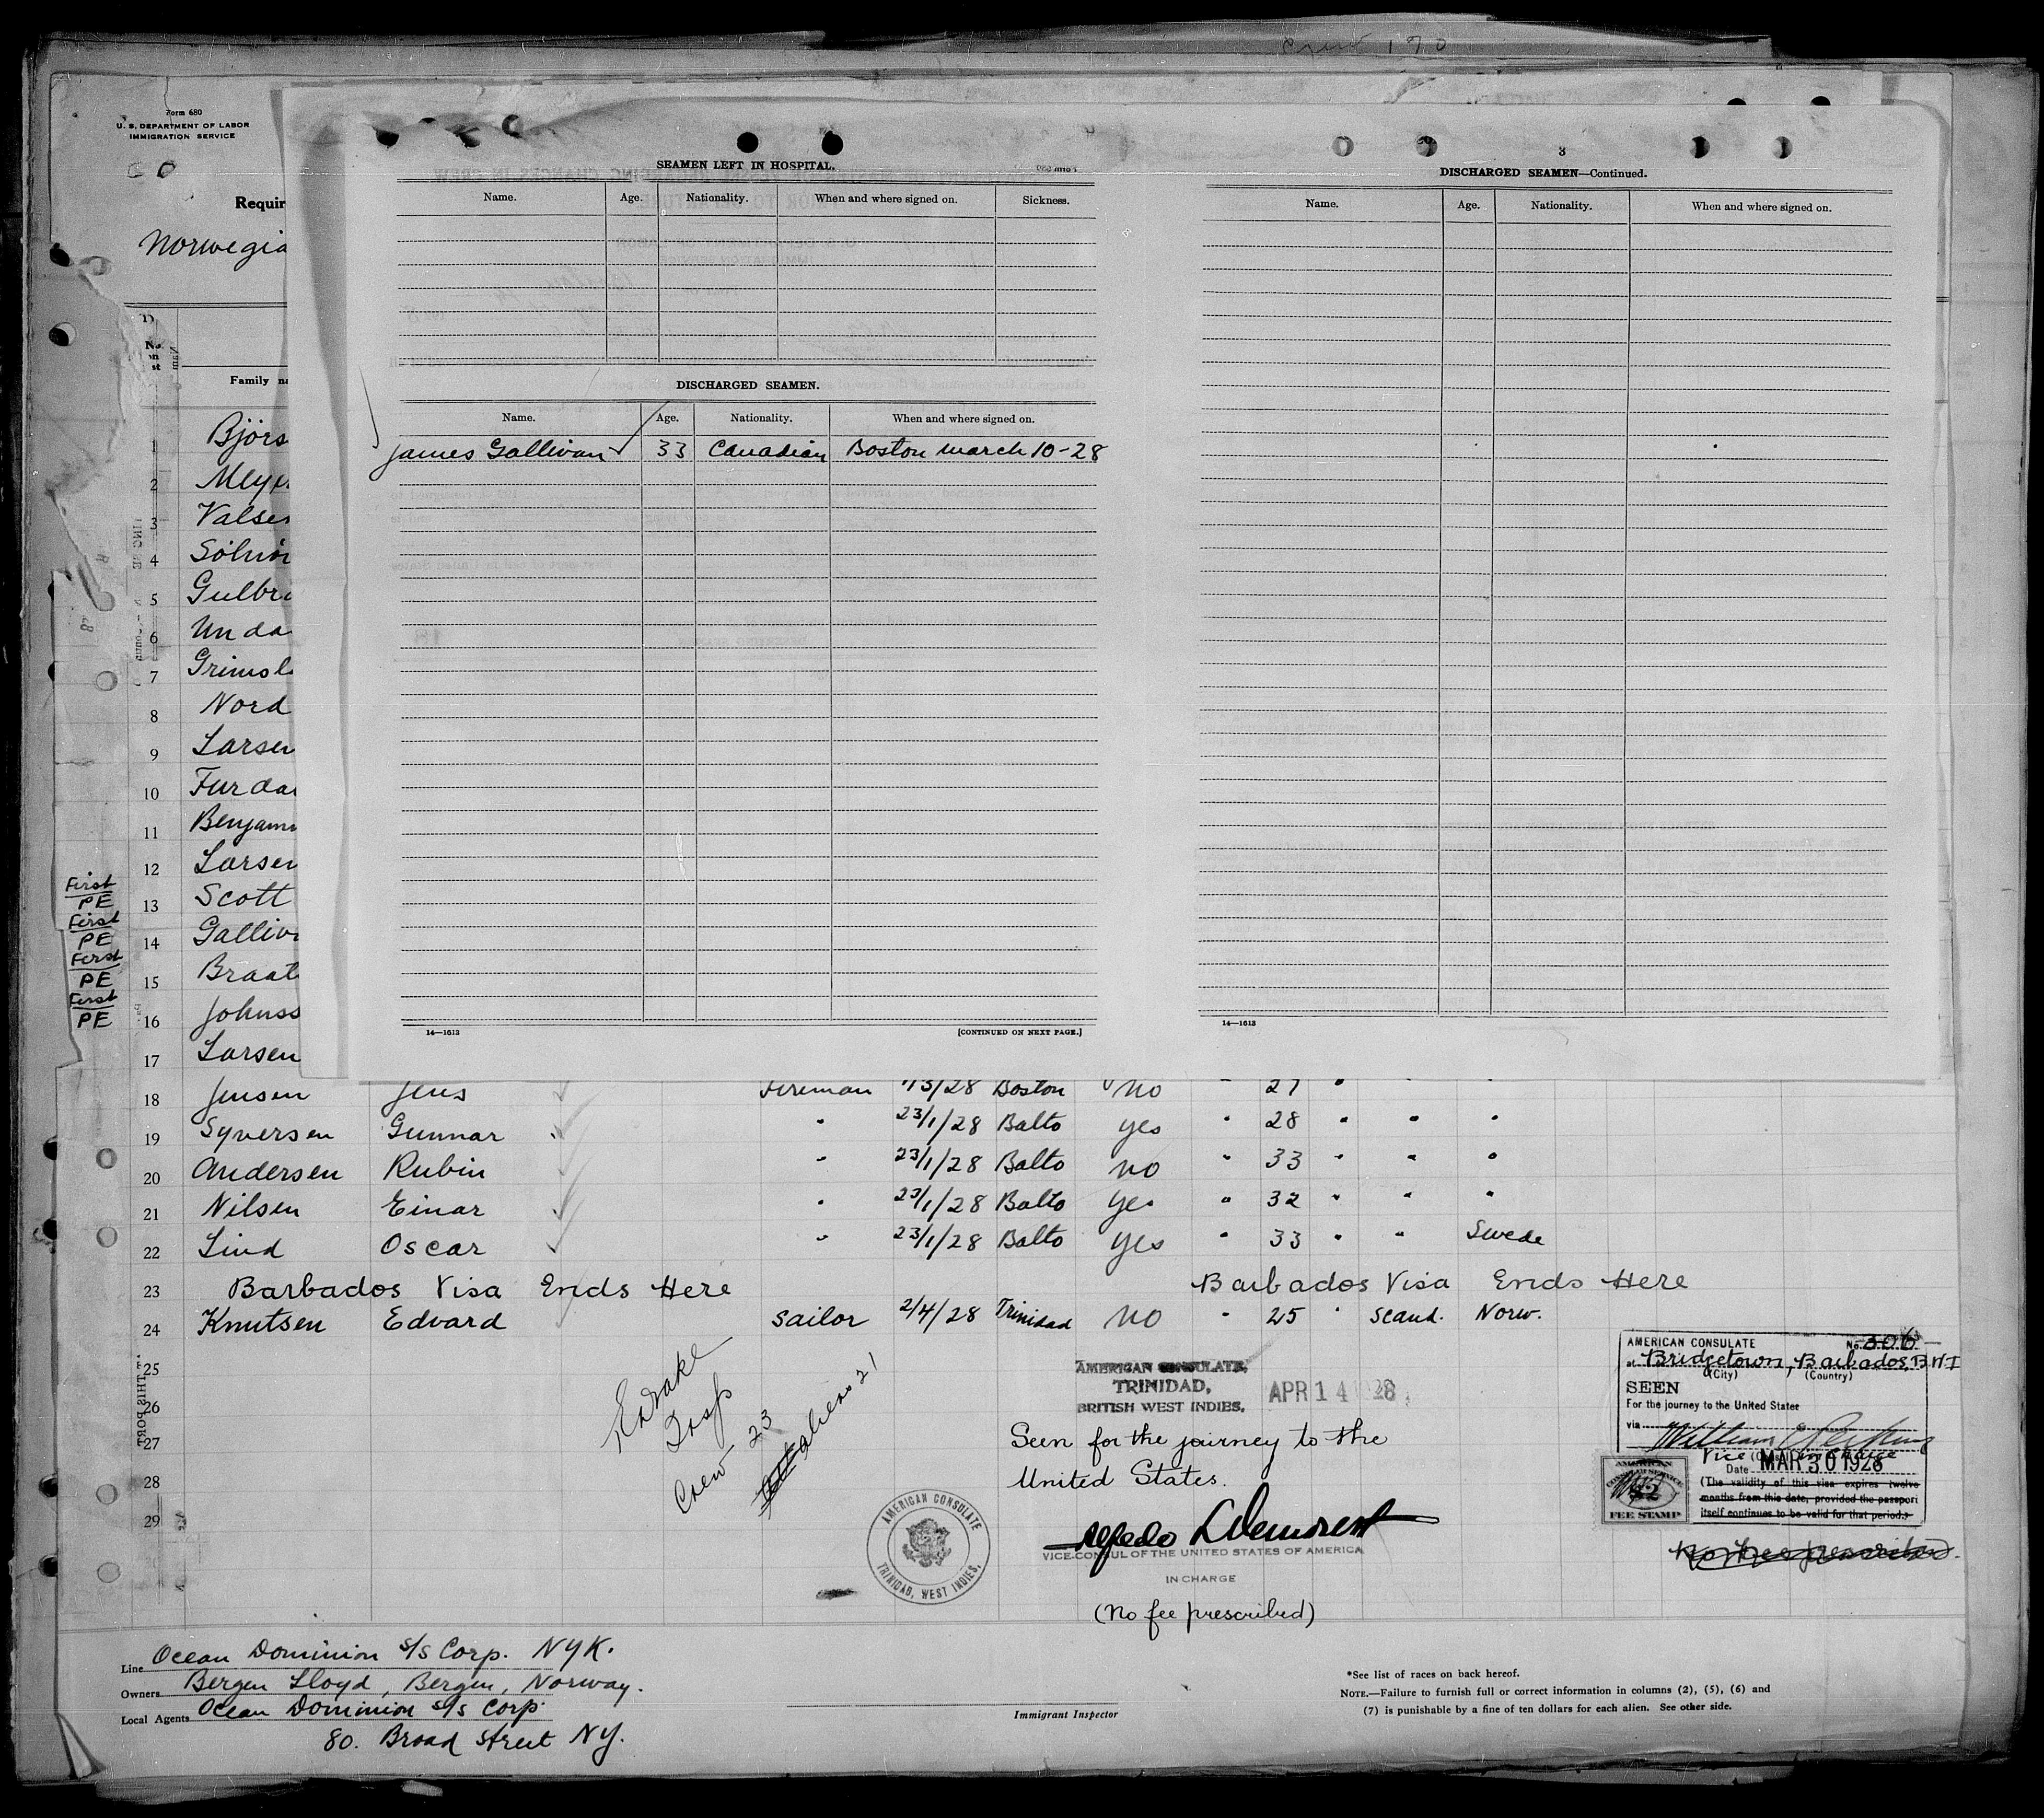 Crew 190
Form 680
U. S. DEPARTMENT OF LABOR
IMMIGRATION SERVICE
Requir
Norwegia
Family na
SEAMEN LEFT IN HOSPITAL.
Name. Age. Nationality. When and where signed on. Sickness.
DISCHARGED SEAMEN.
Name. Age. Nationality. When and where signed on.
James Gallivan 33 Canadian Boston march 10-28
14—1613 [CONTINUED ON NEXT PAGE.]
3
DISCHARGED SEAMEN—Continued.
Name. Age. Nationality. When and where signed on.
14—1613
1 Björs
2 Meye
3 Valsen
4 Sölnör
5 Gulbra
6 Unda
7 Grimsl
8 Nord
9 Larsen
10 Furda
11 Benjami
12 Larsen
First PE 13 Scott
First PE 14 Galliva
First PE 15 Braat
First PE 16 Johnss
17 Larsen
18 Jensen Jens Fireman /3/28 Boston no " 27 " " "
19 Syversen Gunnar " 23/1/28 Balto yes " 28 " " "
20 Andersen Rubin " 23/1/28 Balto no " 33 " " "
21 Nilsen Einar " 23/1/28 Balto yes " 32 " " "
22 Lind Oscar " 23/1/28 Balto yes " 33 " " Swede
23 Barbados Visa Ends Here Barbados Visa Ends Here
24 Knutsen Edvard sailor 2/4/28 Trinidad no " 25 " Scand. Norw.
25
26
27
28
29
THIS PORT
Drake
Insp
Crew 23
aliens 21
AMERICAN CONSULATE,
TRINIDAD,
BRITISH WEST INDIES.
APR 14 1928
Seen for the journey to the
United States.
Alfredo L Demorest
VICE-CONSUL OF THE UNITED STATES OF AMERICA
IN CHARGE
(No fee prescribed)
AMERICAN CONSULATE
TRINIDAD, WEST INDIES.
AMERICAN CONSULATE No.
at Bridgetown, Barbados, B W I
(City) (Country)
SEEN
For the journey to the United States
via
William
Vice in charge
Date MAR 30 1928
(The validity of this visa expires twelve
months from this date, provided the passport
itself continues to be valid for that period.)
AMERICAN
CONSULAR SERVICE
$2
FEE STAMP
No fee prescribed
Line Ocean Dominion S/S Corp. NYK.
Owners Bergen Lloyd, Bergen, Norway.
Local Agents Ocean Dominion S/S Corp
80. Broad Street NY.
Immigrant Inspector
*See list of races on back hereof.
NOTE.—Failure to furnish full or correct information in columns (2), (5), (6) and
(7) is punishable by a fine of ten dollars for each alien. See other side.